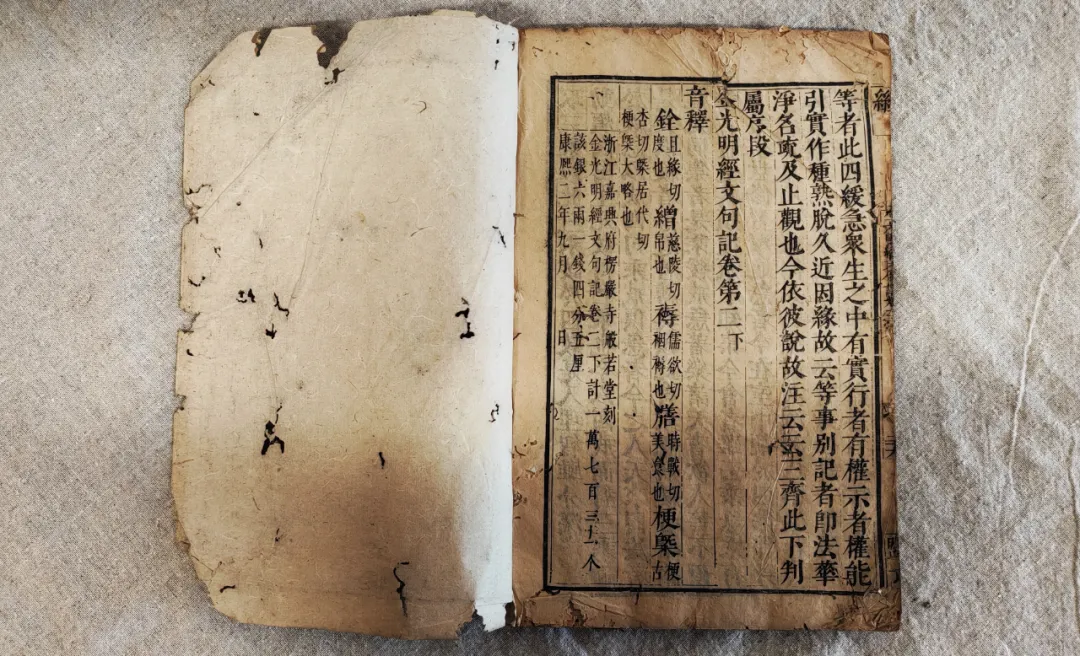 等者此四緩急衆生之中有實行者有權示者權能
引實作種熟脫久近因緣故云等事別記者卽法華
淨名疏及止觀也今依彼說故注云云三齊此下判
屬序段
金光明經文句記卷第二下
音釋
銓且緣切度也 繒慈陵切帛也 褥儒欲切裀褥也 膳時戰切美食也 梗槩梗古
杏切槩居代切
梗槩大略也
浙江嘉興府楞嚴寺般若堂刻
金光明經文句記卷二下計一萬七百三十一个
該銀六兩一錢四分五厘
康熙二年九月 日